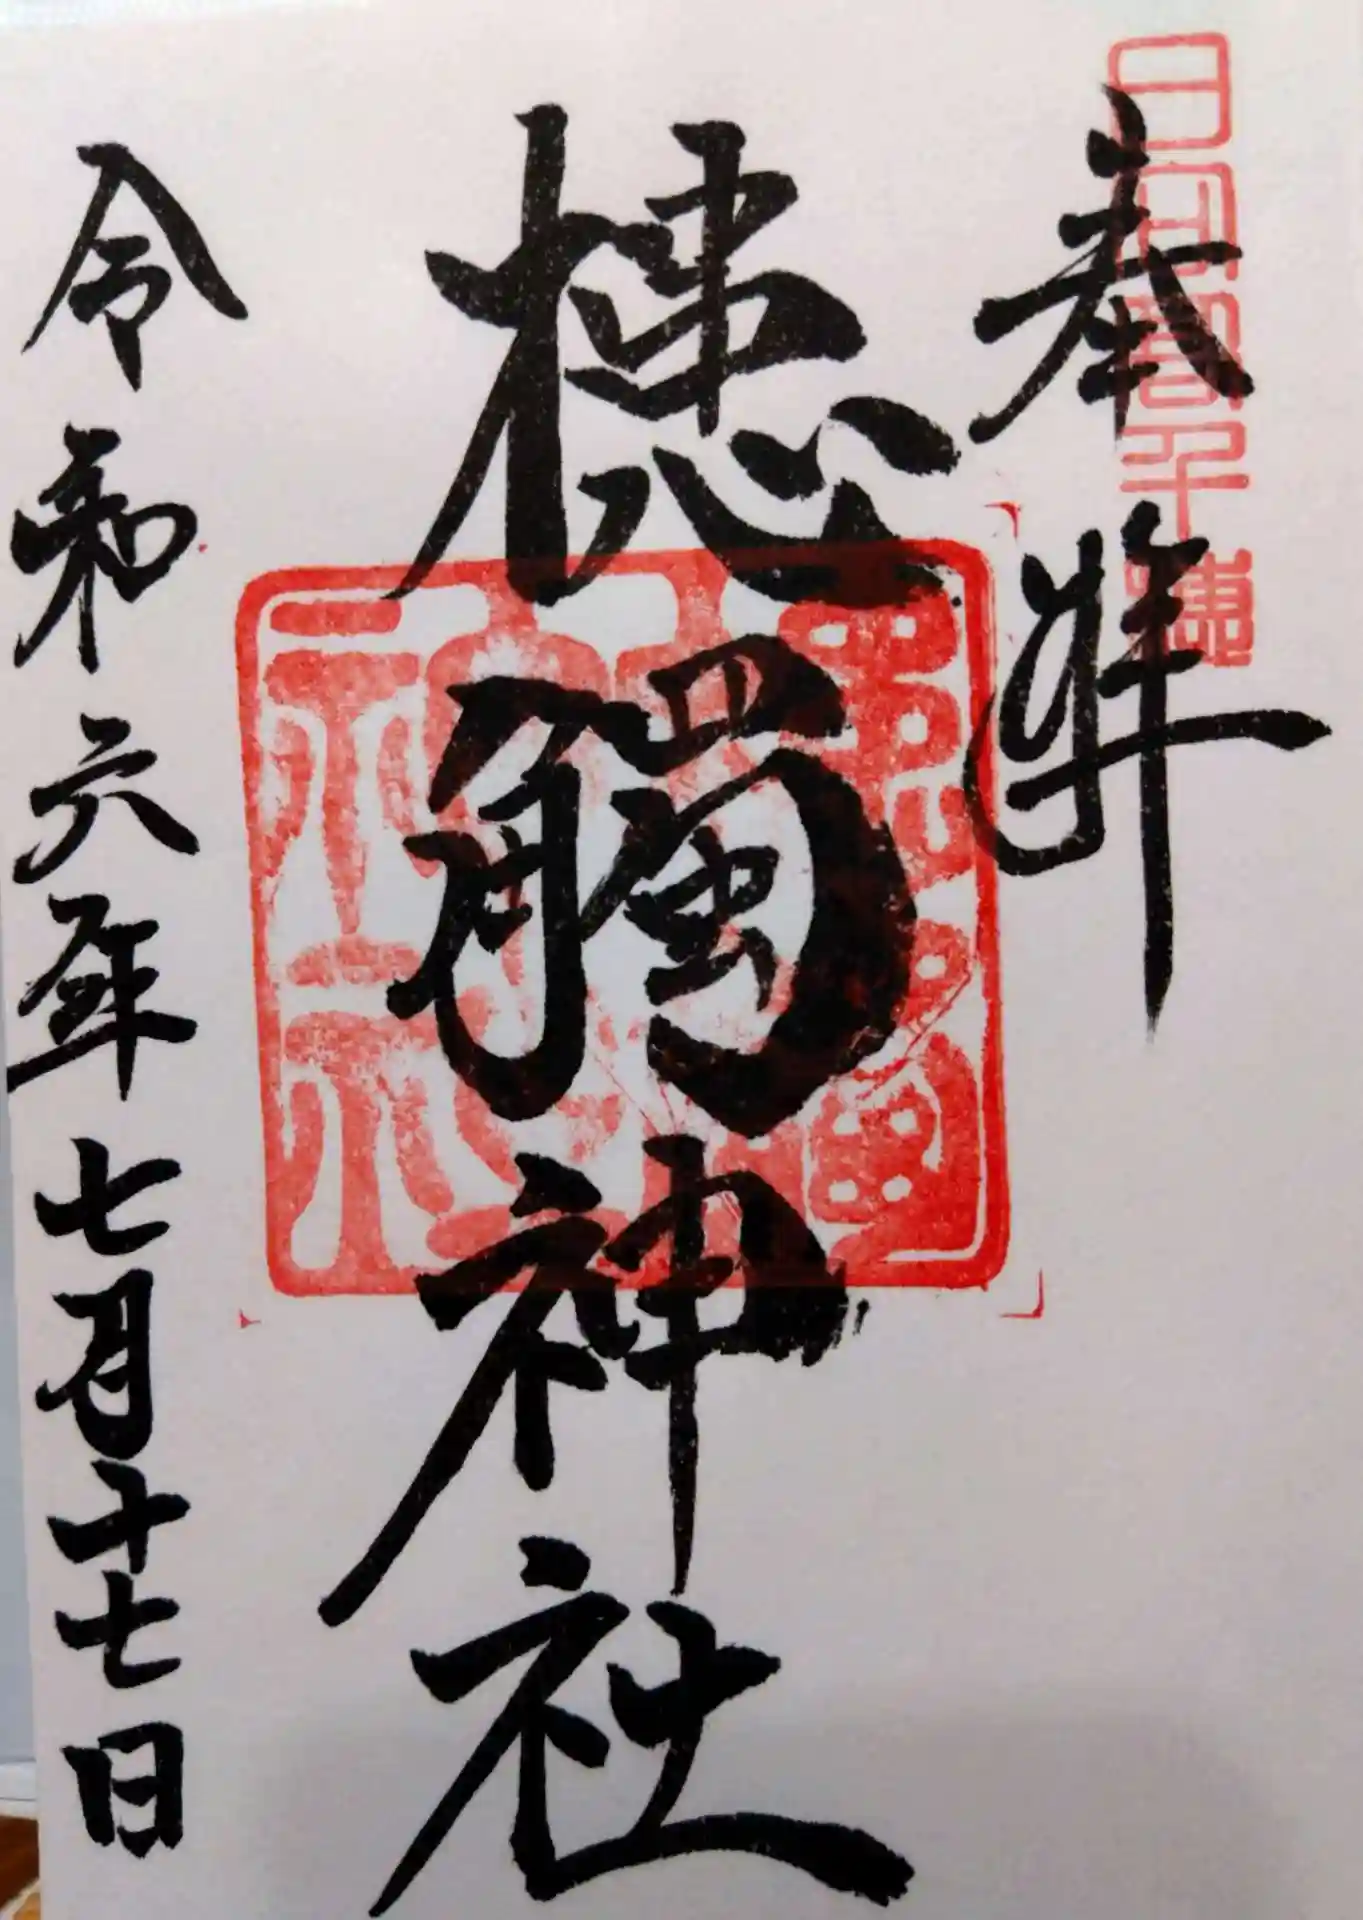 日向高千穂
奉拜
槵觸神社
令和六年七月十七日